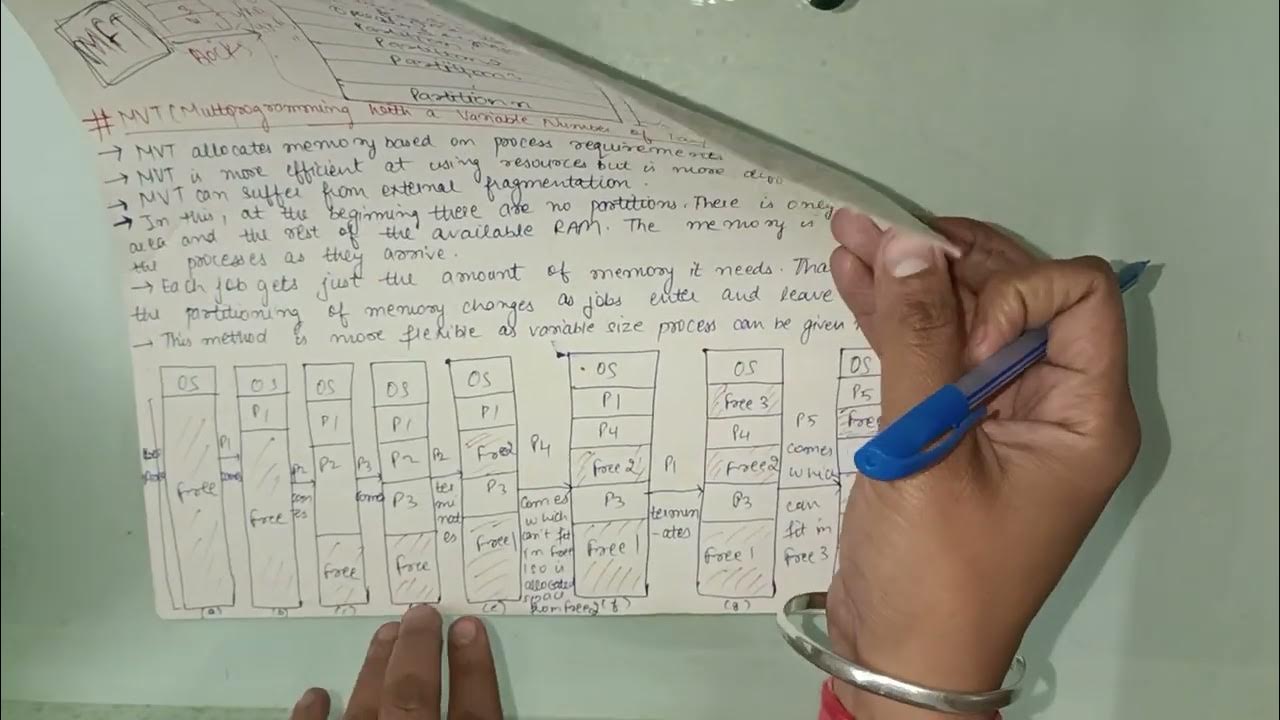 MFT
Partition n
# MVT (Multiprogramming with a Variable Number of
→ MVT allocates memory based on process requirements
→ MVT is more efficient at using resources but is more
→ MVT can suffer from external fragmentation.
→ In this, at the beginning there are no partitions. There is only
area and the rest of the available RAM. The memory is
the processes as they arrive.
→ Each job gets just the amount of memory it needs. Tha
the partitioning of memory changes as jobs enter and leave
→ This method is more flexible as variable size process can be given
OS
Free
(a)
P1
OS
P1
Free
(b)
P2
comes
OS
P1
P2
Free
(c)
P3
OS
P1
P2
P3
Free
P2
terminates
OS
P1
Free2
P3
Free1
(e)
P4
comes
which
can't fit
in Free
1 so is
allocated
space
from free2
OS
P1
P4
Free 2
P3
Free 1
(f)
P1
termin
-ates
OS
Free 3
P4
Free2
P3
Free 1
(g)
P5
comes
which
can
fit in
Free 3
OS
P5
Free